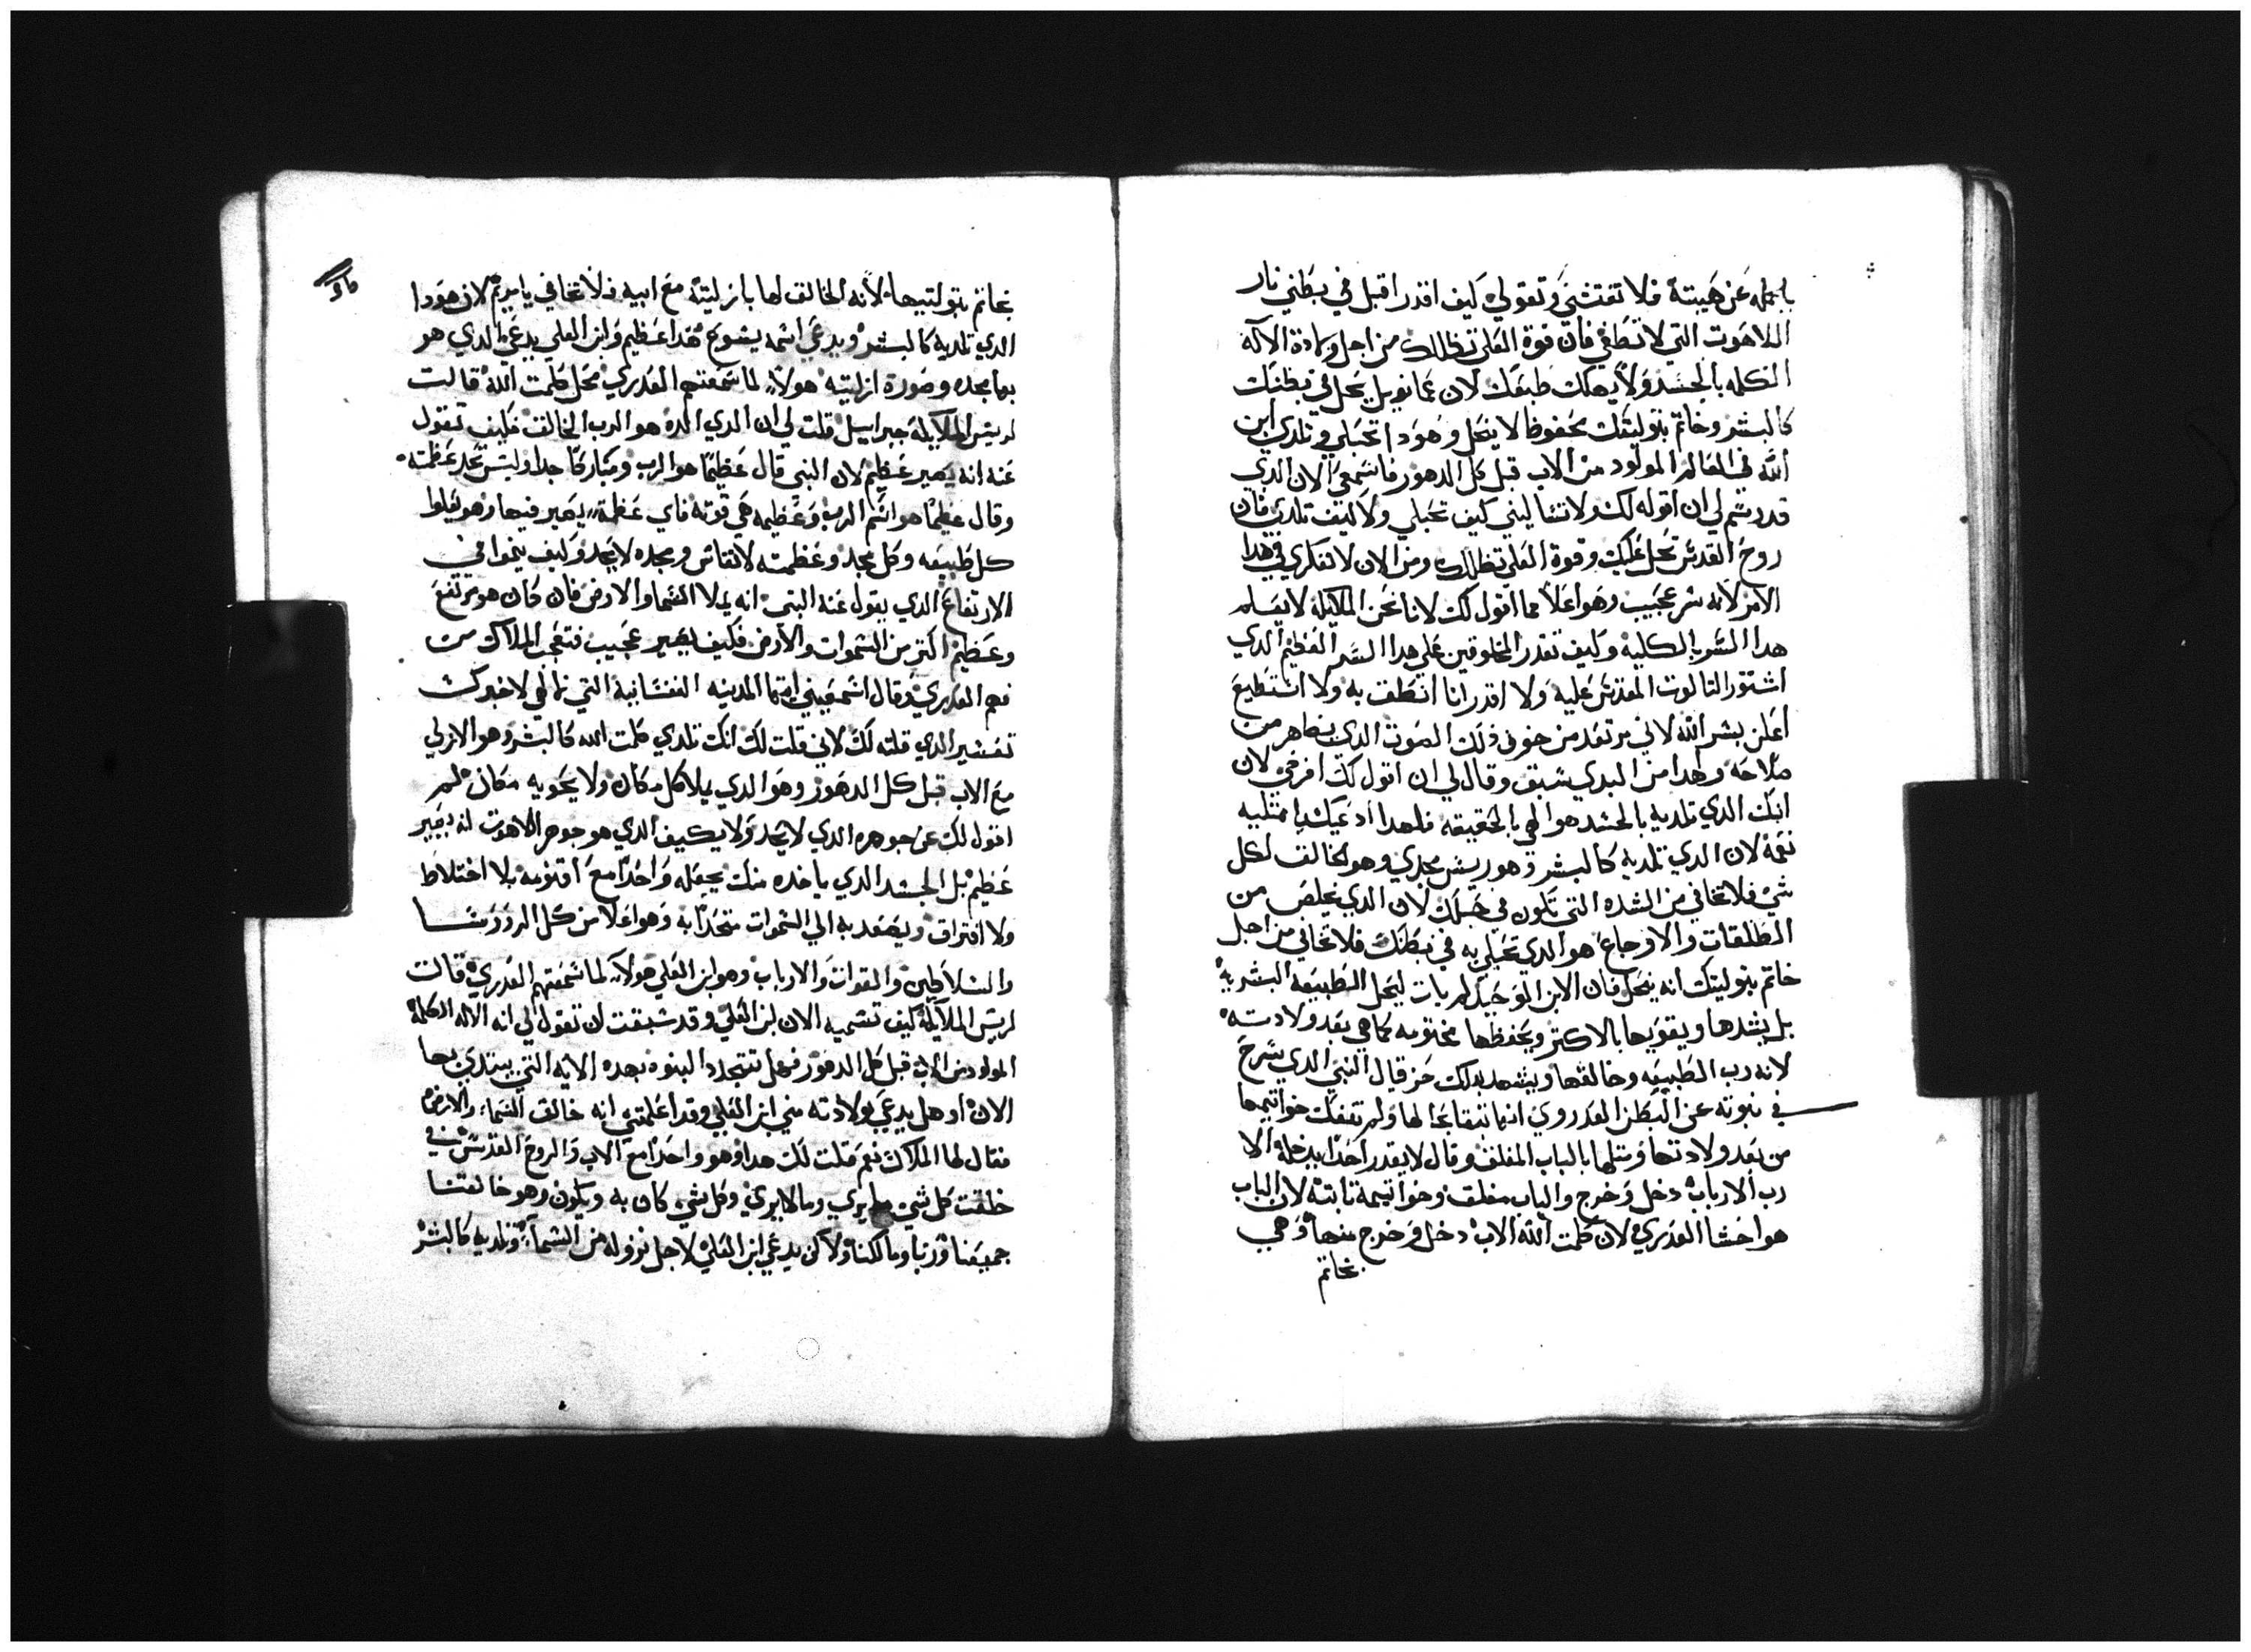 بالجمله عن هيبتة فلا تفتشي وتقولي كيف اقدر اقبل في بطني نار
اللاهوت التي لا تطفي فان قوة العلي تظللك من اجل ولادة الآله
الكلمه بالجسد ولا يهلك طبعك لان عمانويل يحل في بطنك
كالبشر وخاتم بتوليتك محفوظا لا ينحل وهودا تحبلي وتلدي ابن
الله في العالم المولود من الاب قبل كل الدهور فاسمعي الان الدي
قدر سم لي ان اقوله لك ولا تساليني كيف تحبلي ولا كيف تلدي فان
روح القدس تحل عليك وقوة العلي تظللك ومن الان لا تفكري في هدا
الامر لانه سر عجيب وهو اعلا مما اقول لك لانا نحن الملايكه لا يعلم
هدا السر بالكليه وكيف تقدر المخلوقين علي هدا السر العظيم الدي
استتور التالوت المقدس عليه ولا اقدر انا انطق به ولا استطيع
اعلن بسر الله لاني مرتعد من خوف دلك الصوت الدي من
وهدا من البدي سبق وقال لي ان اقول لك افرحي لان
ابنك الدي تلديه بالجسد هو الهي بالحقيقه فلهدا ادعيك يا ممتليه
نعمة لان الدي تلديه كالبشر هو ريس مجدي وهو الخالق لكل
شي فلا تخافي من الشده التي تكون في حبلك لان الدي يخلص من
الطلقات والاوجاع هو الدي تحبلي به في بطنك فلا تخافي من اجل
خاتم بتوليتك انه ينحل فان الابن الوحيد لم يات ليحل الطبيعه البشرية
بل يشدها ويقويها بالاكتر ويحفظها مختومه كما هي بعد ولادته
لانه رب الطبيعه وخالقها ويشهد بدلك حزقيال النبي الدي شرح
في نبوته عن البطن العدروي انها تبقا بحالها ولم تفك خواتيمها
من بعد ولادتها ومتلها بالباب المغلق وقال لا يقدر احدا يدخله الا
رب الارباب دخل وخرج والباب مغلق وخواتيمه تابته لان الباب
هو احشا العدري لان كلمت الله الاب دخل وخرج منها وهي
بخاتم
بخاتم بتوليتيها لانه الخالق لها بازليته مع ابيه فلا تخافي يا مريم لان هودا
الدي تلديه كالبشر ويدعي اسمه يسوع هدا عظيم وابن العلي يدعي الدي هو
بها مجده وصورة ازليته هولاء لما سمعتهم العدري محل كلمت الله قالت
لريس الملايكة جبراييل قلت لي ان الدي الده هو الرب الخالق فكيف تقول
عنه انه يصير عظيم لان النبي قال عظيما هو الرب ومباركا جدا وليس تحد عظمته
وقال عظيما هو اسم الرب وعظيمه هي قوته فاي عظمة يصير فيها وهو
كل طبيعه وكل مجد وعظمته لا تقاس ومجده لا يحد وكيف ينموا في
الارتفاع الدي يقول عنه النبي انه يملا السما والارض فان كان هو مرتفع
وعظيم اكتر من السموات والارض فكيف يصير عجيب فتعجب الملاك من
فهم العدري وقال اسمعيني ايتها المدينه النفسانية التي لالهي لاخبرك
تفسير الدي قلته لك لاني قلت لك انك تلدي كلمت الله كالبشر وهو الازلي
مع الاب قبل كل الدهور وهو الدي يملا كل مكان ولا يحويه مكان لم
اقول لك عن جوهره الدي لا يحد ولا يكيف الدي هو جوهر اللاهوت انه يصير
عظيم بل الجسد الدي ياخده منك يجعله واحدا مع اقنومه بلا اختلاط
ولا افتراق ويصعد به الي السموات متحدا به وهو اعلا من كل الروسا
والسلاطين والقوات والارباب وهو ابن العلي هولاء لما سمعتهم العدري قالت
لريس الملايكة كيف تسميه الان ابن العلي وقد سبقت ان تقول لي انه الاله الكلمة
المولود من الاب قبل كل الدهور فهل تتجدد البنوه بهده الايه التي يبتدي بها
الان او هل يدعي بولادته مني ابن العلي وقد اعلمتني انه خالق السما والارض
فقال لها الملاك نعم قلت لك هدا وهو واحدا مع الاب والروح القدس في
خلقت كل شي ما يري وما لا يري وكل شي كان به ويكون وهو خالقنا
جميعنا وربنا ومالكنا ولاكن يدعي ابن العلي لاجل نزوله من السماء وتلديه كالبشر